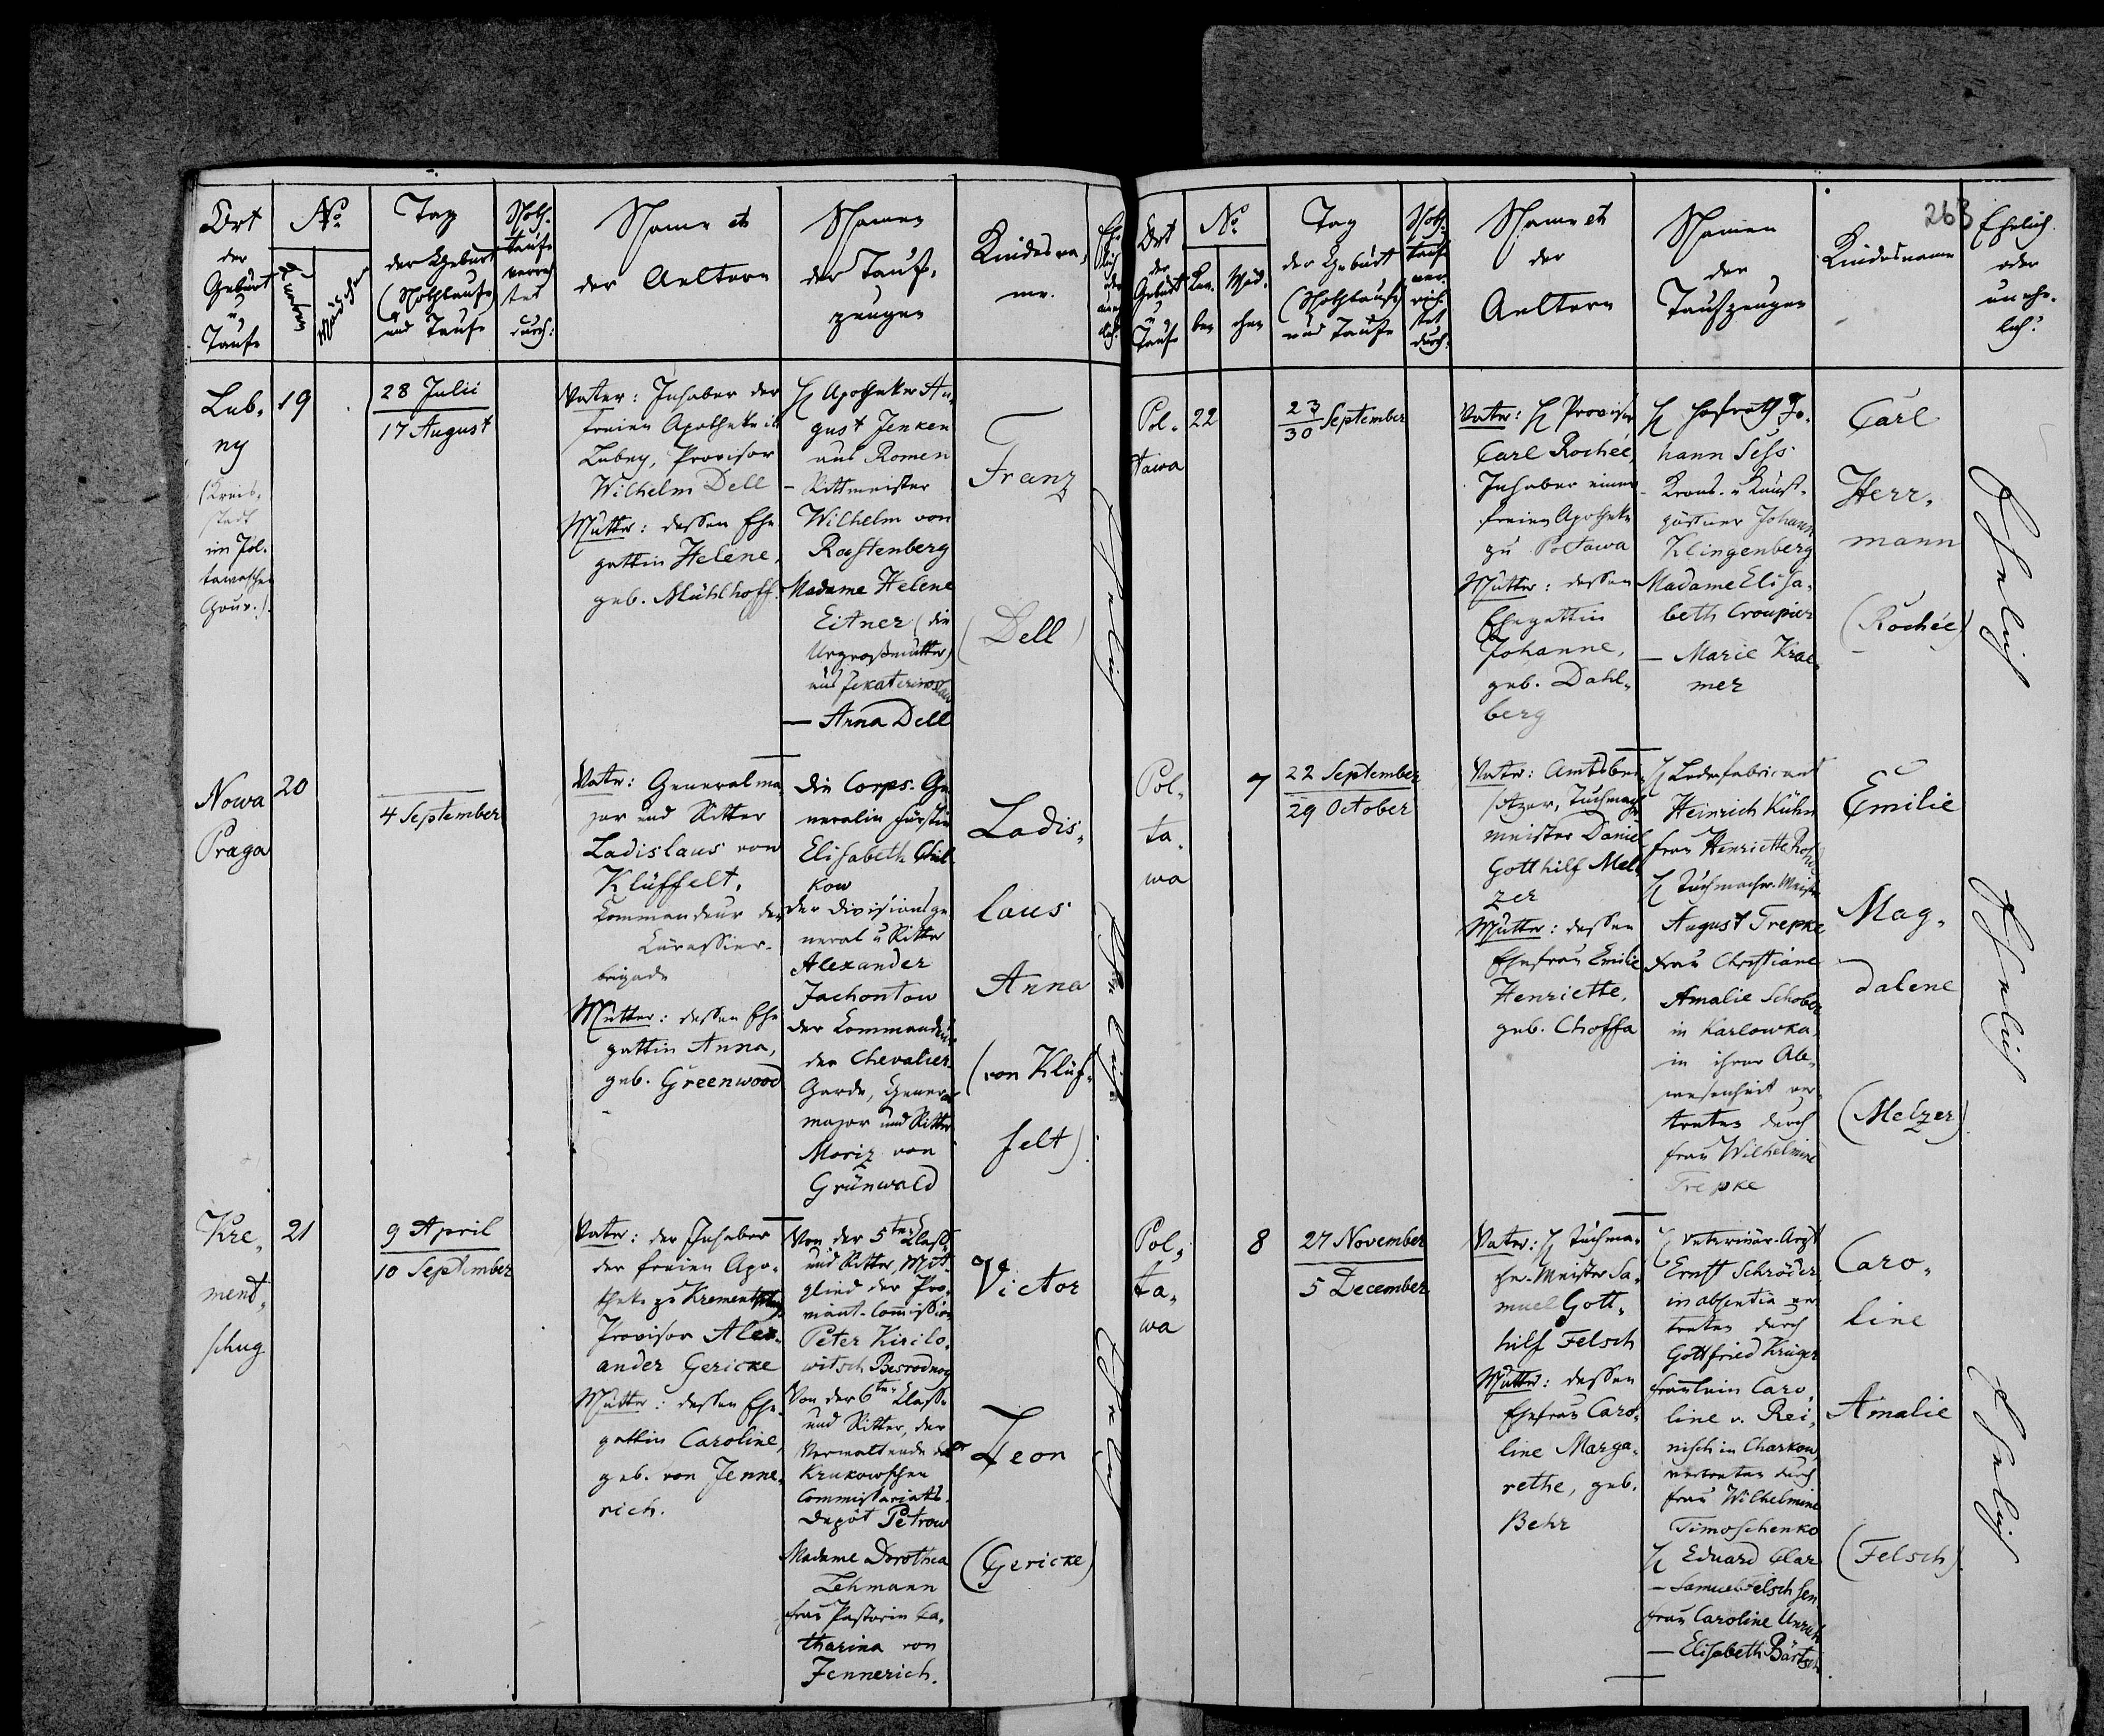 Ort
der
Geburt
u.
Taufe
No
Knaben
Mädchen
Tag
der Geburt
(Nothtaufe)
und Taufe
Noth-
taufe
verrich-
tet
durch:
Name etc
der Aeltern
Namen
der Tauf-
zeugen
Kindesna-
me.
Ehe-
lich
oder
unehe-
lich.
Lub-
ny
(Kreis-
stadt
im Pol-
tawaschen
Gouv.).
19
28 Julii
17 August
Vater: Inhaber der
freien Apotheke in
Lubny, Provisor
Wilhelm Dell
Mutter: dessen Ehe
gattin Helene,
geb. Mühlhoff.
H Apotheker Au-
gust Jenken
aus Romen
- Rittmeister
Wilhelm von
Raustenberg
Madame Helene
Eitner (die
Urgroßmutter)
aus Jekaterinoslaw
— Anna Dell
Franz
(Dell)
Ehelich
Nowa
Praga
20
4 September
Vater: Generalma-
jor und Ritter
Ladislaus von
Klüffelt,
Commandeur der
Cürassier-
brigade
Mutter: dessen Ehe
gattin Anna,
geb. Greenwood
die Corps-Ge
neralin Fürstin
Elisabeth Chil-
kow
der Divisionsge
neral u Ritter
Alexander
Jachontow
der Commandeur
der Chevalier-
Garde, General
major und Ritter
Moriz von
Grünwald
Ladis-
laus
Anna
(von Klüf-
felt)
Ehelich
Kre-
ment-
schug
21
9 April
10 September
Vater: der Inhaber
der freien Apo-
theke zu Krementschug
Provisor Alex-
ander Gericke
Mutter: dessen Ehe-
gattin Caroline,
geb. von Jenne-
rich.
Von der 5ten Classe
und Ritter, Mit-
glied der Pro-
viant-Commission
Peter Kirilo-
witsch Besrodnoy
Von der 6ten Classe
und Ritter, der
Verwaltende des
Krukowschen
Commissariats-
Depôt Petrow
Madame Dorothea
Lehmann
Frau Pastorin Ca-
tharina von
Jennerich.
Victor
Leon
(Gericke)
Ehelich
263
Ort
der
Geburt
u
Taufe
No
Kna-
ben
Mäd-
chen
Tag
der Geburt
(Nothtaufe)
und Taufe
Noth-
taufe
ver-
rich-
tet
durch:
Name etc
der
Aeltern
Namen
der
Taufzeugen
Kindesname
Ehelich
oder
unehe-
lich?
Pol-
tawa
22
23
30 September
Vater: H Provisor
Carl Rochée,
Inhaber einer
freien Apotheke
zu Poltawa
Mutter: dessen
Ehegattin
Johanne,
geb. Dahl-
berg
H Hofrath Jo-
hann Sess
- Krons- u Kunst-
gärtner Johann
Klingenberg
Madame Elisa-
beth Croupier
— Marie Krae-
mer
Carl
Herr-
mann
(Rochée)
Ehelich
Pol-
ta-
wa
7
22 September
29 October
Vater:
Tuchmacher
meister Daniel
Gotthilf Mel-
zer
Mutter: dessen
Ehefrau Emilie
Henriette,
geb. Choffa
H Lederfabricant
Heinrich Kühn
Frau Henriette
H Tuchmacher-Meister
August Trepke
Frau Christiane
Amalie Schober
in Karlowka,
in ihrer Ab-
wesenheit ver-
treten durch
Frau Wilhelmine
Trepke
Emilie
Mag-
dalene
(Melzer)
Ehelich
Pol-
ta-
wa
8
27 November
5 December
Vater: H Tuchma-
cher-Meister Sa-
muel Gott-
hilf Felsch
Mutter: dessen
Ehefrau Caro-
line Marga-
rethe, geb.
Behr
H Veterinär-Arzt
Ernst Schröder,
in absentia ver-
treten durch
Gottfried Krüger
Fräulein Caro-
line v. Rei-
nisch in Charkow,
vertreten durch
Frau Wilhelmine
Timoschenko
H Eduard Clar
— Samuel Felsch sen
Frau Caroline Unruh
— Elisabeth Bärtsch
Caro-
line
Amalie
(Felsch)
Ehelich